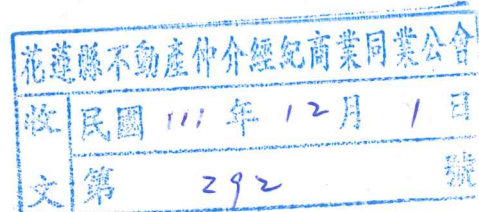 花蓮縣不動產仲介經紀商業同業公會
收文 民國 111 年 12 月 1 日
第 292 號